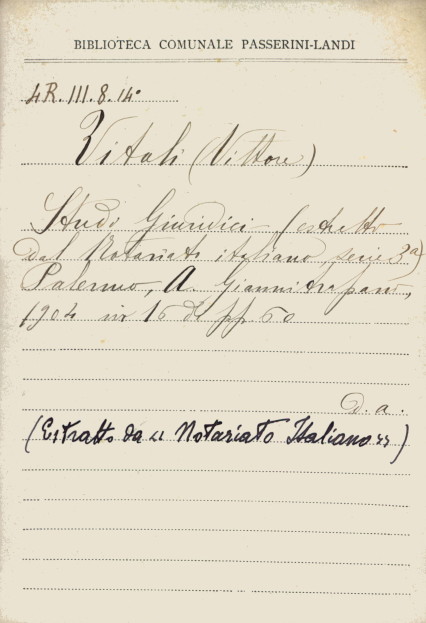 BIBLIOTECA COMUNALE PASSERINI-LANDI
4R.III.8.14°
Vitali (Vittore)
Studi Giuridici (estratto
dal Notariato italiano, serie 3ª)
Palermo, A. Giannitrapani,
1904 in 16 di pp 60
d. a.
(Estratto da « Notariato Italiano »)